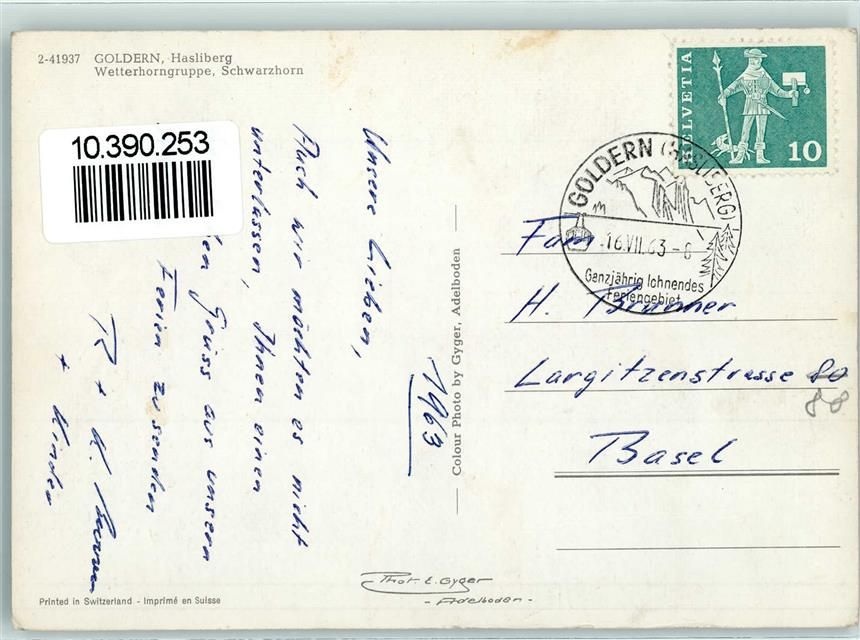 2-41937 GOLDERN, Hasliberg
Wetterhorngruppe, Schwarzhorn
10.390.253
Unsere Lieben,
Auch wir möchten es nicht
unterlassen, Ihnen einen
Gruss aus unsern
Ferien zu senden
R + K
+ Kinder
1963
Colour Photo by Gyger, Adelboden
HELVETIA
10
GOLDERN (HASLIBERG)
16.VII.63-8
Ganzjährig lohnendes
Feriengebiet
Fam
H. Brunner
Largitzenstrasse 80
88
Basel
Phot. E. Gyger
- Adelboden -
Printed in Switzerland - Imprimé en Suisse